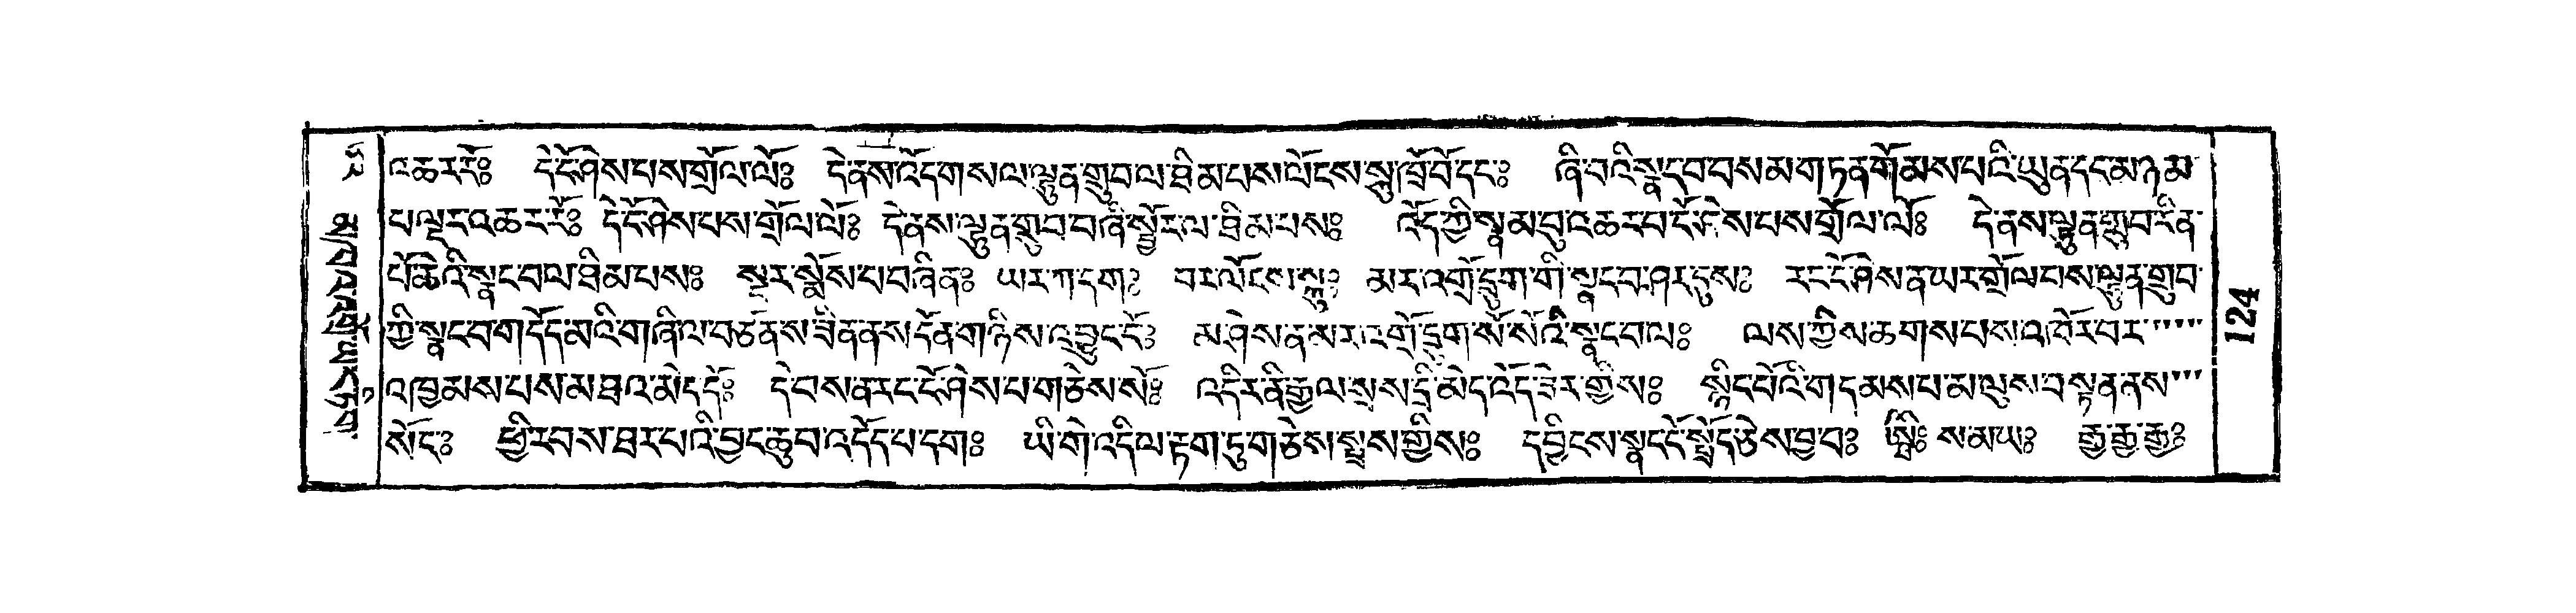 འཆར་རོ༔ དེ་ངོ་ཤེས་པས་གྲོལ་ལོ༔ དེ་ནས་འོད་གསལ་ལྷུན་གྲུབ་ལ་ཐིམ་པས་ལོངས་སྐུ་ཁྲོ་བོ་དང་༔ ཞི་བའི་སྣང་བ་བསམ་གཏན་གོམས་པའི་ཡུན་དང་མཉམ་
པ་ལྟར་འཆར་རོ༔ དེ་ངོ་ཤེས་པས་གྲོལ་ལོ༔ དེ་ནས་ལྷུན་གྲུབ་བཞི་སྦྱོར་ལ་ཐིམ་པས༔ འོད་ཀྱི་སྣམ་བུ་འཆར་བ་ངོ་ཤེས་པས་གྲོལ་ལོ༔ དེ་ནས་ལྷུན་གྲུབ་རིན་
པོ་ཆེའི་སྣང་བ་ལ་ཐིམ་པས༔ སྔར་སྨོས་པ་བཞིན༔ ཡར་ཀ་དག༔ བར་ལོངས་སྐུ༔ མར་འགྲོ་དྲུག་གི་སྣང་བ་ཤར་དུས༔ རང་ངོ་ཤེས་ན་ཡར་གྲོལ་བས་ལྷུན་གྲུབ་
ཀྱི་སྣང་བ་གདོད་མའི་གཞི་ལ་བཙན་ས་ཟིན་ནས་དོན་གཉིས་འབྱུང་ངོ༔ མ་ཤེས་ན་མར་འགྲོ་དྲུག་སོ་སོའི་སྣང་བ་ལ༔ ལས་ཀྱིས་ཆགས་པས་འཁོར་བར་
འཁྱམས་པས་མཐའ་མེད་དོ༔ དེ་བས་ན་རང་ངོ་ཤེས་པ་གཅེས་སོ༔ འདི་ར་ནི་རྒྱལ་སྲས་དྲི་མེད་འོད་ཟེར་གྱིས༔ སྙིང་པོའི་གདམས་པ་མ་ལུས་བསྟན་ནས་
སོང་༔ ཕྱི་རབས་ཐར་པའི་བྱང་ཆུབ་འདོད་པ་དག༔ ཡི་གེ་འདི་ལ་རྟག་ཏུ་གཅེས་སྤྲས་གྱིས༔ དབྱིངས་སྣང་ངོ་སྤྲོད་ཅེས་བྱ་བ༔ ས་མ་ཡ༔ རྒྱ་རྒྱ་རྒྱ༔